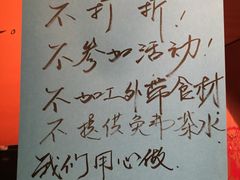 不打折!
不参加活动!
不加工外带食材
不提供免邦茶水.
我们用心做.